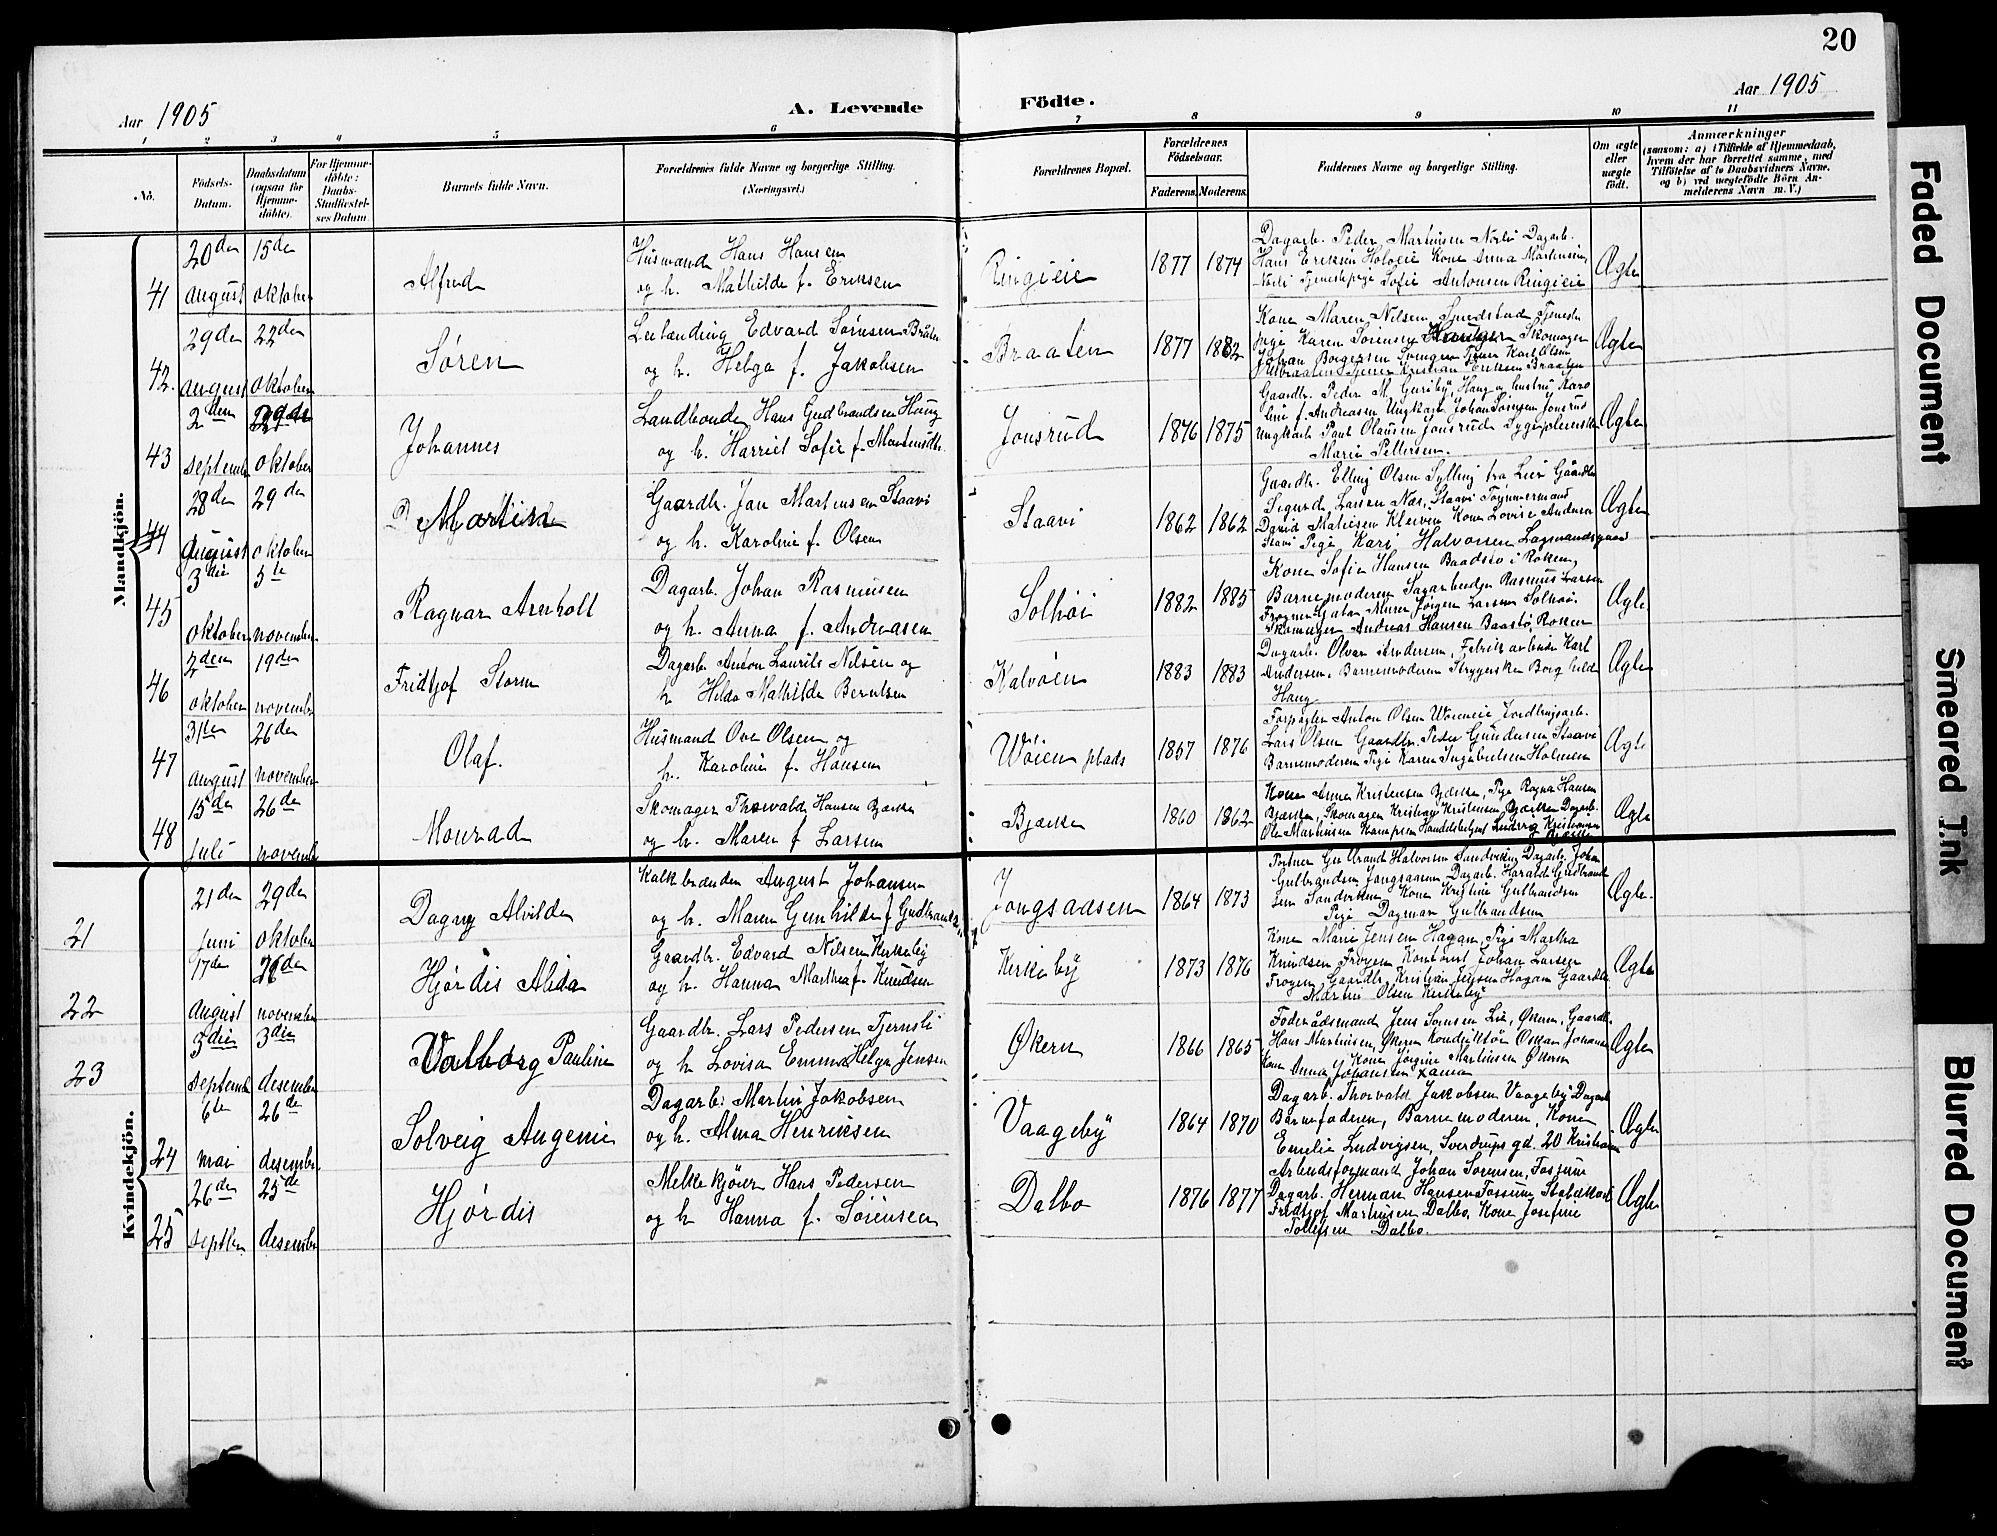 20
Aar 1905
A. Levende Födte.
Aar 1905
1 2 3 4 5 6 7 8 9 10 11
No.
Födsels-Datum.
Daabsdatum (ogsaa for Hjemme-döbte).
For Hjemme-döbte: Daabs-Stadfæstel-ses Datum
Barnets fulde Navn.
Forældrenes fulde Navne og borgerlige Stilling. (Næringsvei.)
Forældrenes Bopæl.
Forældrenes Födselsaar.
Faderens. Moderens.
Faddernes Navne og borgerlige Stilling.
Om ægte eller uægte födt.
Anmærkninger
(saasom: a) i Tilfælde af Hjemmedaab, hvem der har forrettet samme, med Tilföielse af to Daabsvidners Navne, og b) ved uægtefödte Börn An-melderens Navn m. V.)
Mandkjön.
41
20de august
15de oktober
Alfred
Husmand Hans Hansen
og h. Mathilde f. Eriksen
Ringieie
1877 1874
Dagarb. Peder Martinsen Dagarb.
Hans Eriksen Kone Anna Martinsen,
Sofie Antonsen Ringieie
Ægte
42.
29de august
22de oktober
Søren
Leilending Edvard Sørensen Braaten
og h. Helga f. Jakobsen
Braaten
1877 1882
Kone Maren Nilsen tjeneste
pige Karen Sørensen Skomager
Johan Borgersen Karl Olsen
Kristian Eriksen Braaten
Ægte
43
2den september
29de oktober
Johannes
Landhandl. Hans Gudbrandsen Haug
og h. Harriet Sofie f. Mortensdtr.
Jonsrud
1876 1875
Gaardbr. Peder M. Haug og hustru Karo
line f. Andreasen Ungkarl Johan Sørensen Jonsrud
Ungkarl Paul Olausen Jonsrud Sygepleierske
Marie Pettersen.
Ægte
44
28de august
29de oktober
Martin
Gaardbr. Jan Martinsen Staavi
og h. Karoline f. Olsen
Staavi
1862 1862
Gaardbr. Elling Olsen Sylling fra Lier Gaardbr
Sigurd Larsen Næs, Staavi Tømmermand
David Mathisen Kleiven Kone Lovise Andersen
Stavi Pige Kari Halvorsen Lagmandsgaard
Ægte
45
3die oktober
5te november
Ragnar Arnholt
Dagarb. Johan Rasmusen
og h. Anna f. Andreasen
Solhøi
1882 1885
Kone Sofie Hansen Baadstø i Røken,
Barnemoderen Sagarbeider Rasmus Larsen
Frogner Gaten Murer Jørgen Larsen Solhøi.
Skomager Andreas Hansen Baastø Røken
Ægte
46
2den oktober
19de november
Fridtjof Storm
Dagarb. Anton Laurits Nilsen og
h. Hilda Mathilde Berntsen
Kalvøen
1883 1883
Dagarb. Olvar Andersen, Fabrikarbeider Karl
Andersen, Barnemoderen Strygerske Borghild
Haug
Ægte
47
31te august
26de november
Olaf.
Husmand Ove Olsen og
h. Karoline f. Hansen
Wøien plads
1857 1876
Forpagter Anton Olsen Jordbrugsarb.
Lars Olsen Gaardbr. Peder Gundersen Staavi
Barnemoderen Pige Karen Ingebretsen Holmen
Ægte
48
15de juli
26de november
Monrad
Skomager Thorvald Hansen Bjerke
og h. Maren f Larsen
Bjerke
1860 1862
Kone Anna Kristensen Bjerke, Pige Ragna Hansen
Bjerke, Skomager Kristian Kristensen, Bjerke Dagarb.
Ole Martinsen Kampen Handelsbetjent Ludvig Kristensen
Bjerke
Ægte
Kvindekjön.
21
21de juni
29de oktober
Dagny Alvilde
Kalkbrænder August Johansen
og h. Maren Gunhilde f Gudbrands.
Jongsaasen
1864 1873
Portner Gulbrand Halvorsen Sandviken, Dagarb. Johan
Gulbrandsen Jongsaasen Dagarb. Harald Gulbrand
sen Sandviken Kone Kristine Gulbrandsen
Pige Dagmar Gulbrandsen
Ægte.
22
17de august
26de november
Hjørdis Alida
Gaardbr. Edvard Nilsen Kirkeby
og h. Hanna Marthea f. Knudsen
Kirkeby
1873 1876
Kone Marie Jensen Hagan, Pige Martha
Knudsen Frogner Kontorist Johan Larsen
Frogner Gaardbr. Kristian Jensen Hagan Gaardbr.
Martin Olsen Kirkeby
Ægte
23
5die september
3die desember
Valborg Pauline
Gaardbr. Lars Pedersen Tjernsli
og h Lovisa Emma Helga Jensen
Økern
1866 1865
Føderådsmand Jens Sørensen Lie, Økern, Gaardbr.
Hans Martinsen, Økern Konduktør Oskar Johansen
Kone Jørgine Martinsen Økern
Kone Anna Johansen
Ægte
24
6te mai
26de desember.
Solveig Augenie
Dagarb: Martin Jakobsen
og h. Alma Henriksen
Vaageby
1864 1870
Dagarb. Thorvald Jakobsen Vaageby Dagarb
Barnefaderen, Barnemoderen, Kone
Emelie Ludvigsen, Sverdrups gd. 20 Kristiania
Ægte
25
26de septber
25de desember
Hjørdis
Melkekjører Hans Pedersen
og h Hanna f. Sørensen
Dalbo
1876 1877
Arbeidsformand Johan Sørensen, Fossum
Dagarb. Herman Hansen Fossum, Staldkarl
Fridtjof Martinsen Dalbo. Kone Josefine
Tollefsen Dalbo.
Ægte
Faded Document
Smeared Ink
Blurred Document